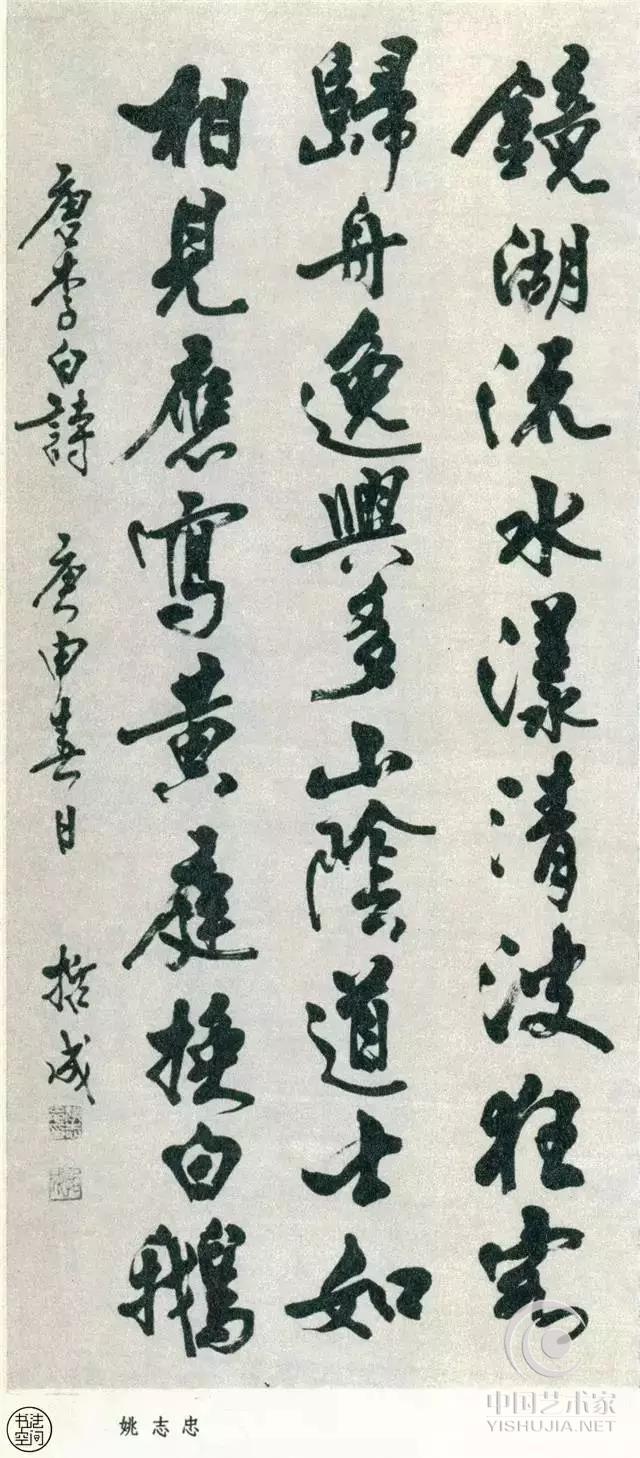 鏡湖流水漾清波狂客
歸舟逸興多山陰道士如
相見應寫黃庭換白鵝
唐李白詩 庚申春日 哲成
姚志忠
书法空间
中国艺术家
YISHUJIA.NET